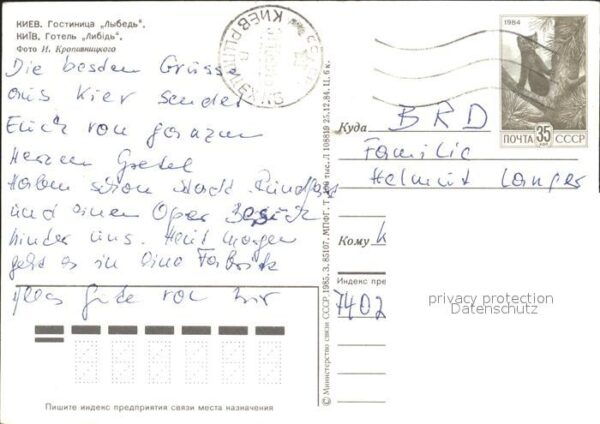 КИЕВ. Гостиница „Лыбедь".
КИЇВ. Готель „Либідь".
Фото И. Кропивницкого
Die besden Grüsse
aus Kiev sendet
Euch von ganzem
Herzen Gretel
Haben schon Stadt Rundfahrt
und einen Oper Besuch
hinder uns. Heut morgen
geht es in eine Fabrik
Alles Gude von mir
Пишите индекс предприятия связи места назначения
© Министерство связи СССР. 1985. З. 85107. МПФГ. Т. тыс. Л 108819 25.12.84. Ц. 6 к.
1984
ПОЧТА 35 коп СССР
Куда BRD
Familie
Helmut Langer
Кому K
Индекс пре
7402
privacy protection
Datenschutz